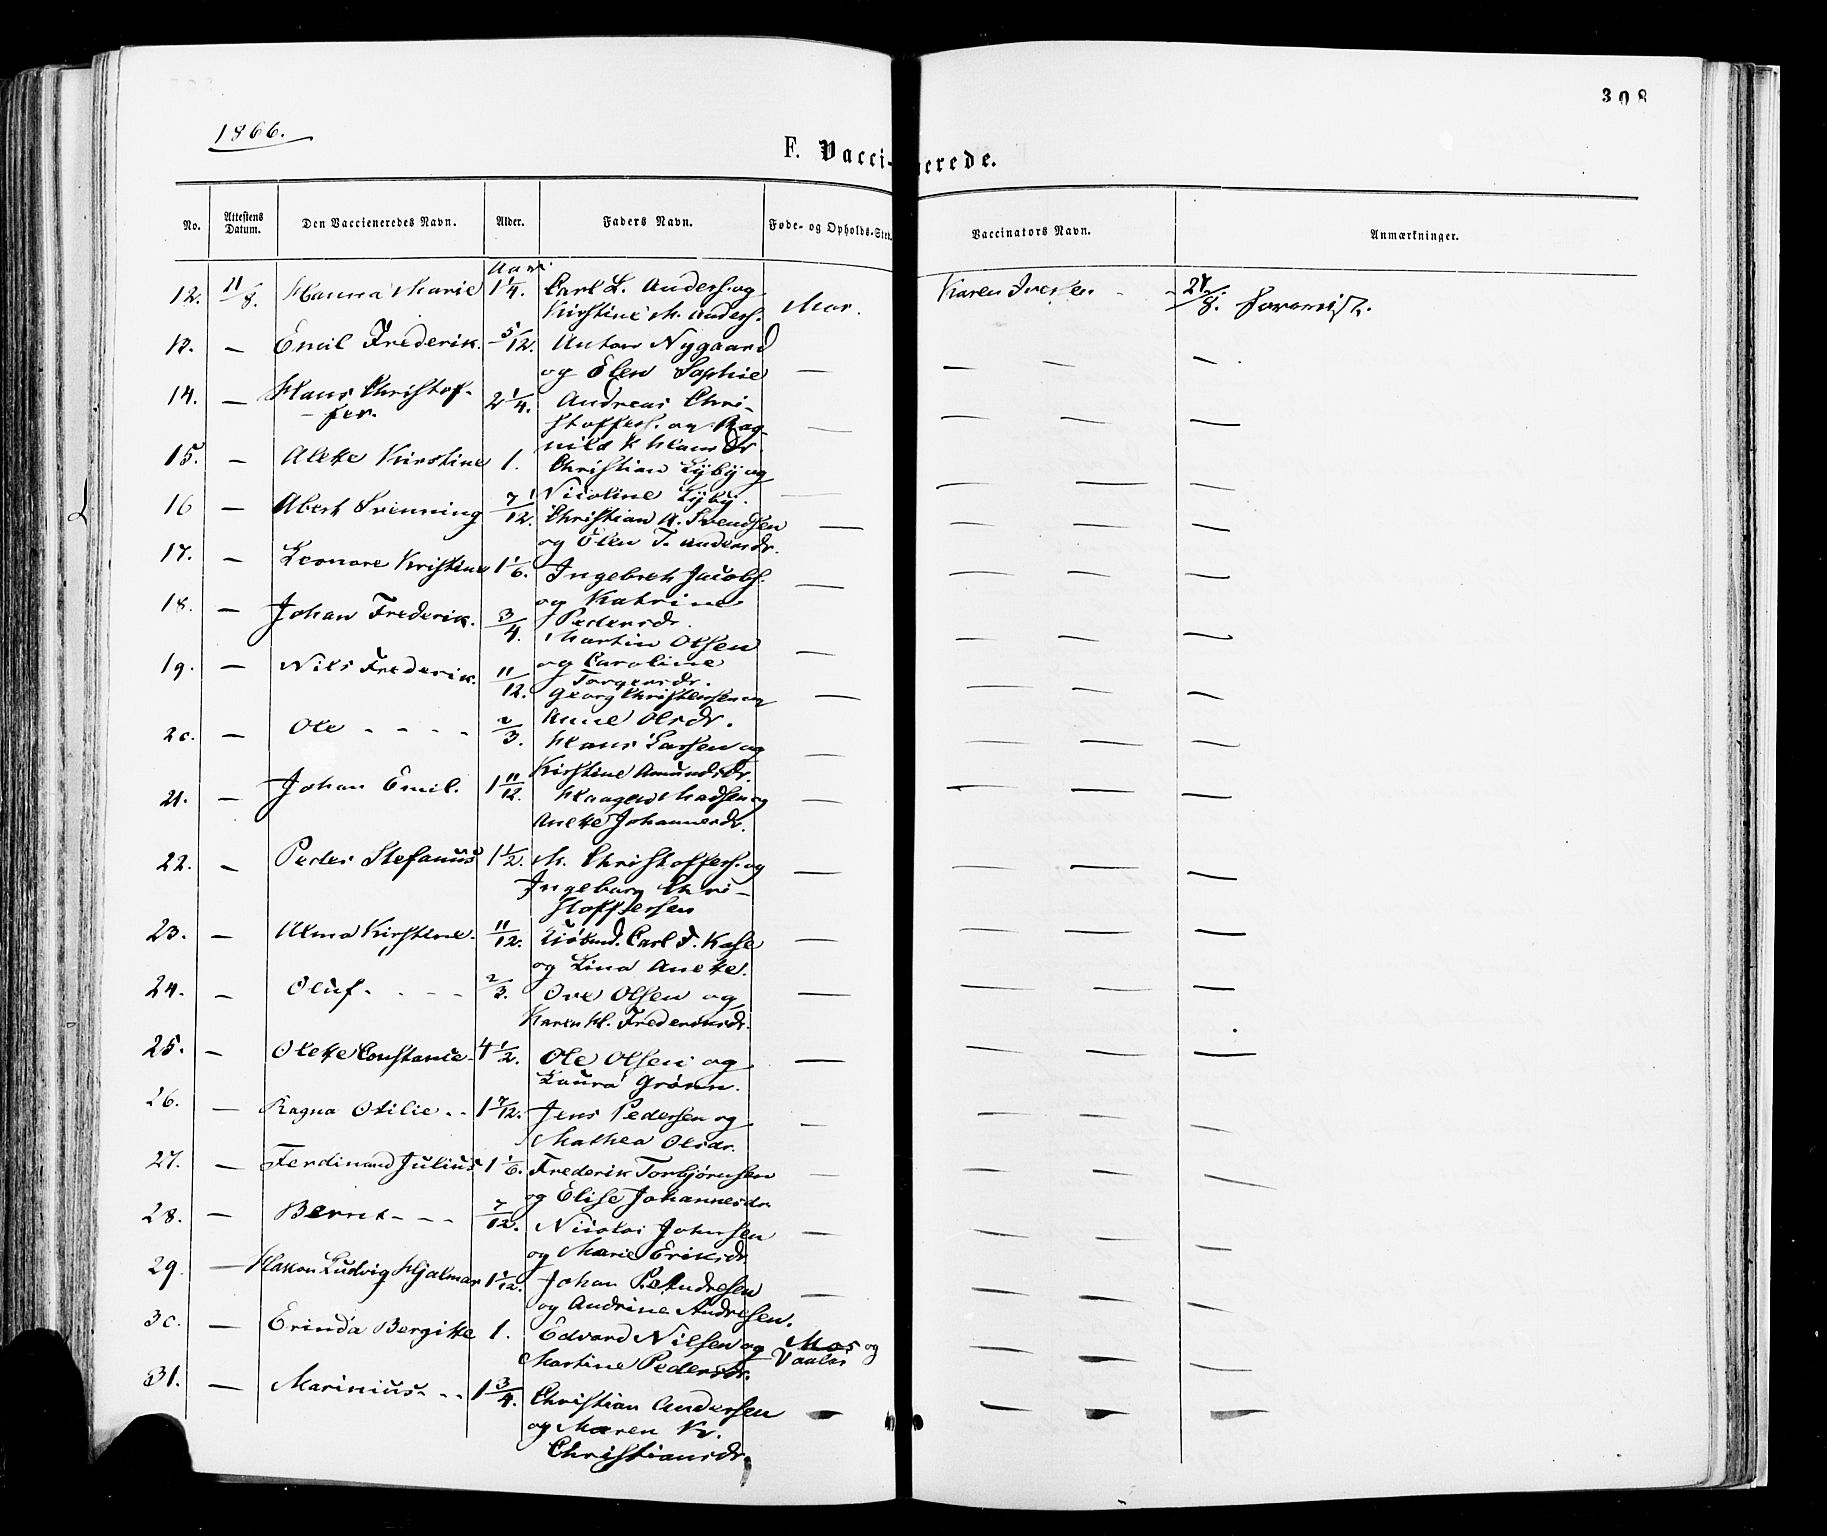 308
1866.
F. Vaccinerede.
No. Attestens Datum. Den Vaccieneredes Navn. Alder. Faders Navn. Føde- og Opholds-Stet. Vaccinators Navn. Anmærkninger.
Aar.
12. 21/8. Hanna Marie 1 1/4. Carl L. Anders. og Mos. Karen Iversen - - 28/8.
Kirstine M. Anders.
13. — Emil Frederik. 5/12. Anton Nygaard
og Elen Sophie — — — —
14. — Hans Christof- 2 1/4. Andreas Chri-
fer. stoffers. og Rag- — — — —
nild K Hansdr
15. — Alette Kirstine 1. Christian Lyby og
Nicoline Lyby. — — — —
16 — Albert Svenning 7/12. Christian A. Svendsen — — — —
og Elen T. Andersdr.
17. — Leonore Kristine 1 1/6. Ingebret Jacobs. — — — —
og Katrine
Pedersdr.
18. — Johan Frederik. 3/4. Martin Olsen — — — —
og Caroline
Torgersdr.
19. — Nils Frederik. 11/12. Georg Christensen og — — — —
Anne Olsdr.
20. — Ole - - - - 2/3. Hans Larsen og — — — —
Kirstine Amundsdr.
21. — Johan Emil. 1 11/12. Haagen Madsen og — — — —
Anette Johannesdr.
22. — Peder Stefanus 1 1/2. M. Christoffers. og — — — —
Ingeborg Chri-
stoffersen
23. — Alma Kirstine. 11/12. Carl F. — — — —
og Lina Anette.
24. — Oluf. - - - 2/3. Ove Olsen og — — — —
Karen M. Frederiksdr.
25. — Olette Constance 4 1/2. Ole Olsen og — — — —
Laura Grønn.
26. — Ragna Otilie - - 1 7/12. Jens Pedersen og — — — —
Mathea Olsdr.
27. — Ferdinand Julius 1 1/6. Frederik Torbjørnsen — — — —
og Elise Johannesdr.
28. — Bernt - - - 7/12. Nicolai Johnsen — — — —
og Marie Eriksdr.
29. — Hakon Ludvig Hjalmar 1 1/12. Johan P. Andresen — — — —
og Andrine Andresen.
30. — Erinda Bergitte 1. Edvard Nilsen og Mos og — — —
Martine Pedersdr. Vaaler
31. — Marinius - - 1 3/4. Christian Andersen — — — —
og Maren Kr.
Christiansdr.